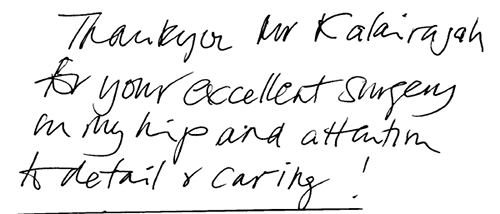 Thankyou Mr Kalairajah
for your excellent surgery
on my hip and attention
to detail & caring !